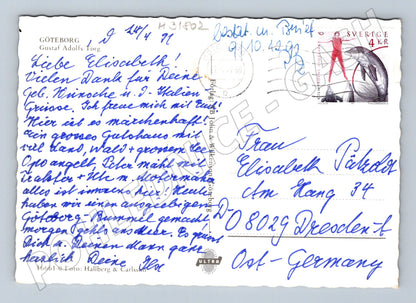 GÖTEBORG
Gustaf Adolfs Torg
H 31802
SVERIGE
4 KR
Liebe Elisabeth!
Vielen Dank für Deine
Geb. Wünsche u. d. Italien
Grüsse. Ich freue mich mit Euch!
Hier ist es märchenhaft!
Ein grosses Gutshaus mit
viel Land, Wald + grossem See
Opa angelt, Peter mäht mit
Traktor + Ute m. Motormäher
alles ist immens, hier. Heute
haben wir einen ausgiebigen
Göteborg-Bummel gemacht
morgen gehts ans Meer. Es grüsst
Dich u. Deinen Mann ganz
herzlich Deine Ilse
Frau
Elisabeth
Am Hang 34
D O 8029 Dresden-A
Ost-Germany
ULTRA
Foto: Hallberg & Carlsson